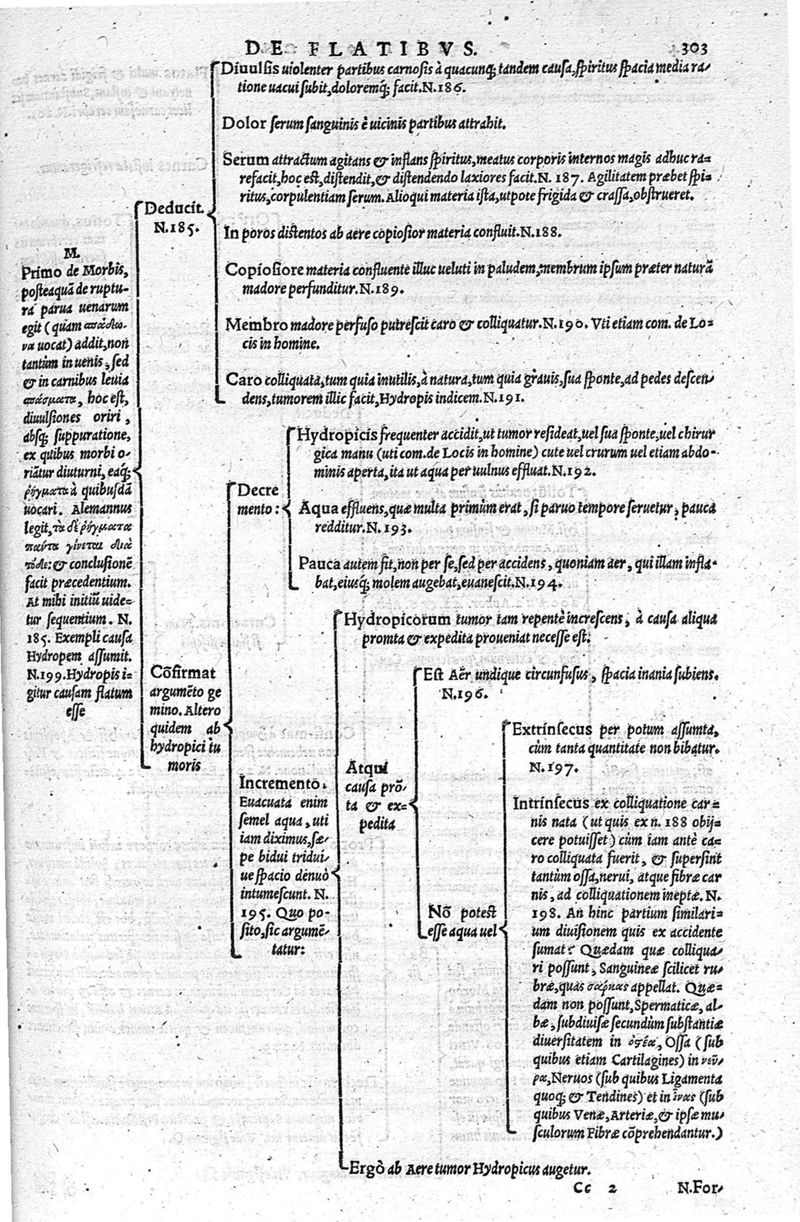 DE FLATIBVS.
303
M.
Primo de Morbis,
posteaquā de ruptu-
ra parua uenarum
egit (quam σπάδωνα
uocat) addit, non
tantùm in uenis, sed
& in carnibus leuia
σπάσματα, hoc est,
diuulsiones oriri,
absq; suppuratione,
ex quibus morbi o-
riātur diuturni, eaq;
ῥήγματα à quibusdā
uocari. Alemannus
legit, τὰ δὲ ῥήγματα
πάντα γίνεται διὰ
τόδε: & conclusionē
facit præcedentium.
At mihi initiū uide-
tur sequentium. N.
185. Exempli causa
Hydropem assumit.
N.199. Hydropis i-
gitur causam flatum
esse
Deducit.
N.185.
Diuulsis uiolenter partibus carnosis à quacunq; tandem causa, spiritus spacia media ra-
tione uacui subit, doloremq; facit. N.186.
Dolor serum sanguinis è uicinis partibus attrahit.
Serum attractum agitans & inflans spiritus, meatus corporis internos magis adhuc ra-
refacit, hoc est, distendit, & distendendo laxiores facit. N. 187. Agilitatem præbet spi-
ritus, corpulentiam serum. Alioqui materia ista, utpote frigida & crassa, obstrueret.
In poros distentos ab aere copiosior materia confluit. N.188.
Copiosiore materia confluente illuc ueluti in paludem, membrum ipsum præter naturā
madore perfunditur. N.189.
Membro madore perfuso putrescit caro & colliquatur. N.190. Vti etiam com. de Lo-
cis in homine.
Caro colliquata, tum quia inutilis, à natura, tum quia grauis, sua sponte, ad pedes descen-
dens, tumorem illic facit, Hydropis indicem. N.191.
Cōfirmat
argumēto ge
mino. Altero
quidem ab
hydropici tu
moris
Decre
mento:
Hydropicis frequenter accidit, ut tumor resideat, uel sua sponte, uel chirur
gica manu (uti com. de Locis in homine) cute uel crurum uel etiam abdo-
minis aperta, ita ut aqua per uulnus effluat. N.192.
Aqua effluens, quæ multa primùm erat, si paruo tempore seruetur, pauca
redditur. N. 193.
Pauca autem fit, non per se, sed per accidens, quoniam aer, qui illam infla-
bat, eiusq; molem augebat, euanescit. N.194.
Incremento.
Euacuata enim
semel aqua, uti
iam diximus, sæ-
pe bidui tridui-
ue spacio denuò
intumescunt. N.
195. Quo po-
sito, sic argumē-
tatur:
Hydropicorum tumor tam repentè increscens, à causa aliqua
promta & expedita proueniat necesse est.
Atqui
causa prō-
ta & ex-
pedita
Est Aër undique circunfusus, spacia inania subiens.
N.196.
Nō potest
esse aqua uel
Extrinsecus per potum assumta,
cùm tanta quantitate non bibatur.
N. 197.
Intrinsecus ex colliquatione car-
nis nata (ut quis ex n. 188 obij-
cere potuisset) cùm iam antè ca-
ro colliquata fuerit, & supersint
tantùm ossa, nerui, atque fibræ car
nis, ad colliquationem ineptæ. N.
198. An hinc partium similari-
um diuisionem quis ex accidente
sumat? Quædam quæ colliqua-
ri possunt, Sanguineæ scilicet ru-
bræ, quas σάρκας appellat. Quæ-
dam non possunt, Spermaticæ, al-
bæ, subdiuisæ secundùm substantiæ
diuersitatem in ὀστέα, Ossa (sub
quibus etiam Cartilagines) in νεῦ-
ρα, Neruos (sub quibus Ligamenta
quoq; & Tendines) et in ἶνας (sub
quibus Venæ, Arteriæ, & ipsæ mu-
sculorum Fibræ cōprehendantur.)
Ergò ab Aere tumor Hydropicus augetur.
Cc 2
N.For-